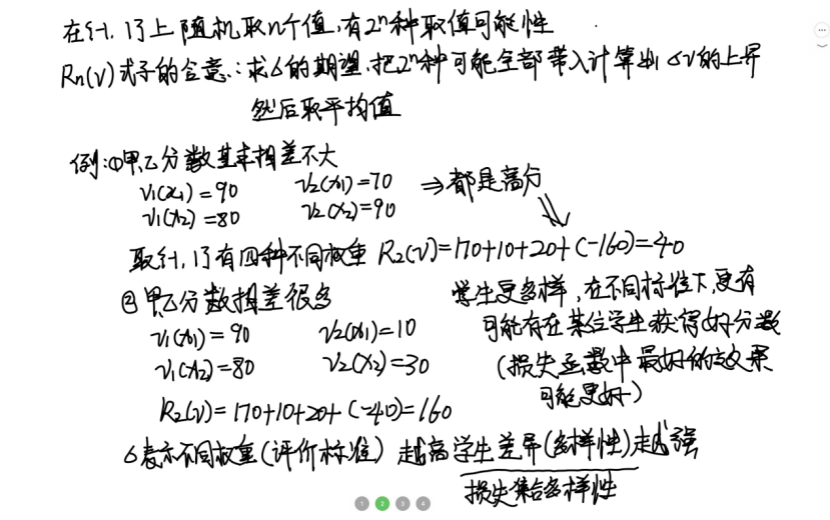 在{-1,1}上随机取n个值,有2ⁿ种取值可能性
Rn(V)式子的含意:求σ的期望,把2ⁿ种可能全部带入计算出σv的上界
然后取平均值
例:①甲乙分数基本相差不大
v1(x1)=90 v2(x1)=70 ⇒都是高分
v1(x2)=80 v2(x2)=90
取{-1,1}有四种不同权重 R2(V)=170+10+20+(-160)=40
②甲乙分数相差很多 学生更多样,在不同标准下,更有
v1(x1)=90 v2(x1)=10 可能存在某位学生获得好分数
v1(x2)=80 v2(x2)=30 (损失函数中最好的效果
可能更好)
R2(V)=170+10+20+(-40)=160
σ表示不同权重(评价标准) 越高学生差异(多样性)越强
损失集合多样性
1 2 3 4